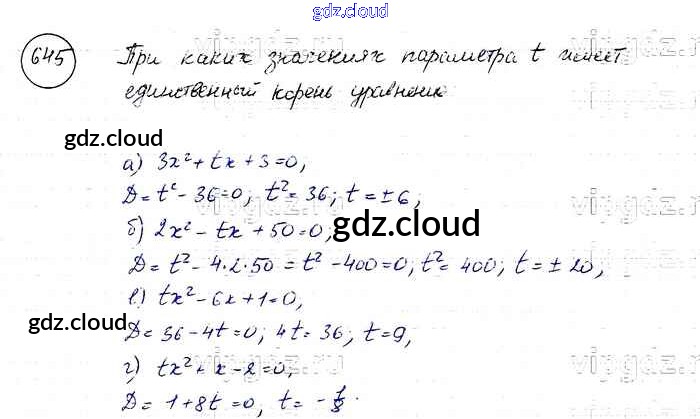 gdz.cloud
645 При каких значениях параметра t имеет
единственный корень уравнение:
gdz.cloud
а) 3x² + tx + 3 = 0,
D = t² - 36 = 0; t² = 36; t = ± 6;
б) 2x² - tx + 50 = 0,
gdz.cloud
D = t² - 4·2·50 = t² - 400 = 0, t² = 400; t = ± 20;
в) tx² - 6x + 1 = 0,
gdz.cloud
D = 36 - 4t = 0; 4t = 36; t = 9,
г) tx² + x - 2 = 0,
D = 1 + 8t = 0, t = - 1/8.